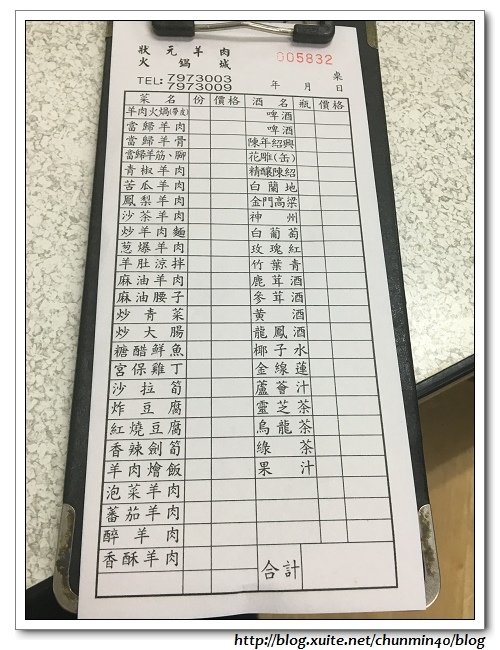 狀元羊肉
火鍋城
005832
TEL: 7973003
7973009
桌
年 月 日
菜名 份 價格 酒名 瓶 價格
羊肉火鍋(帶皮) 啤酒
當歸羊肉 啤酒
當歸羊骨 陳年紹興
當歸羊筋、腳 花雕(缶)
青椒羊肉 精釀陳紹
苦瓜羊肉 白蘭地
鳳梨羊肉 金門高粱
沙茶羊肉 神州
炒羊肉麵 白葡萄
蔥爆羊肉 玫瑰紅
羊肚涼拌 竹葉青
麻油羊肉 鹿茸酒
麻油腰子 參茸酒
炒青菜 黃酒
炒大腸 龍鳳酒
糖醋鮮魚 椰子水
宮保雞丁 金線蓮
沙拉筍 蘆薈汁
炸豆腐 靈芝茶
紅燒豆腐 烏龍茶
香辣劍筍 綠茶
羊肉燴飯 果汁
泡菜羊肉
蕃茄羊肉
醉羊肉
香酥羊肉 合計
http://blog.xuite.net/chunmin40/blog